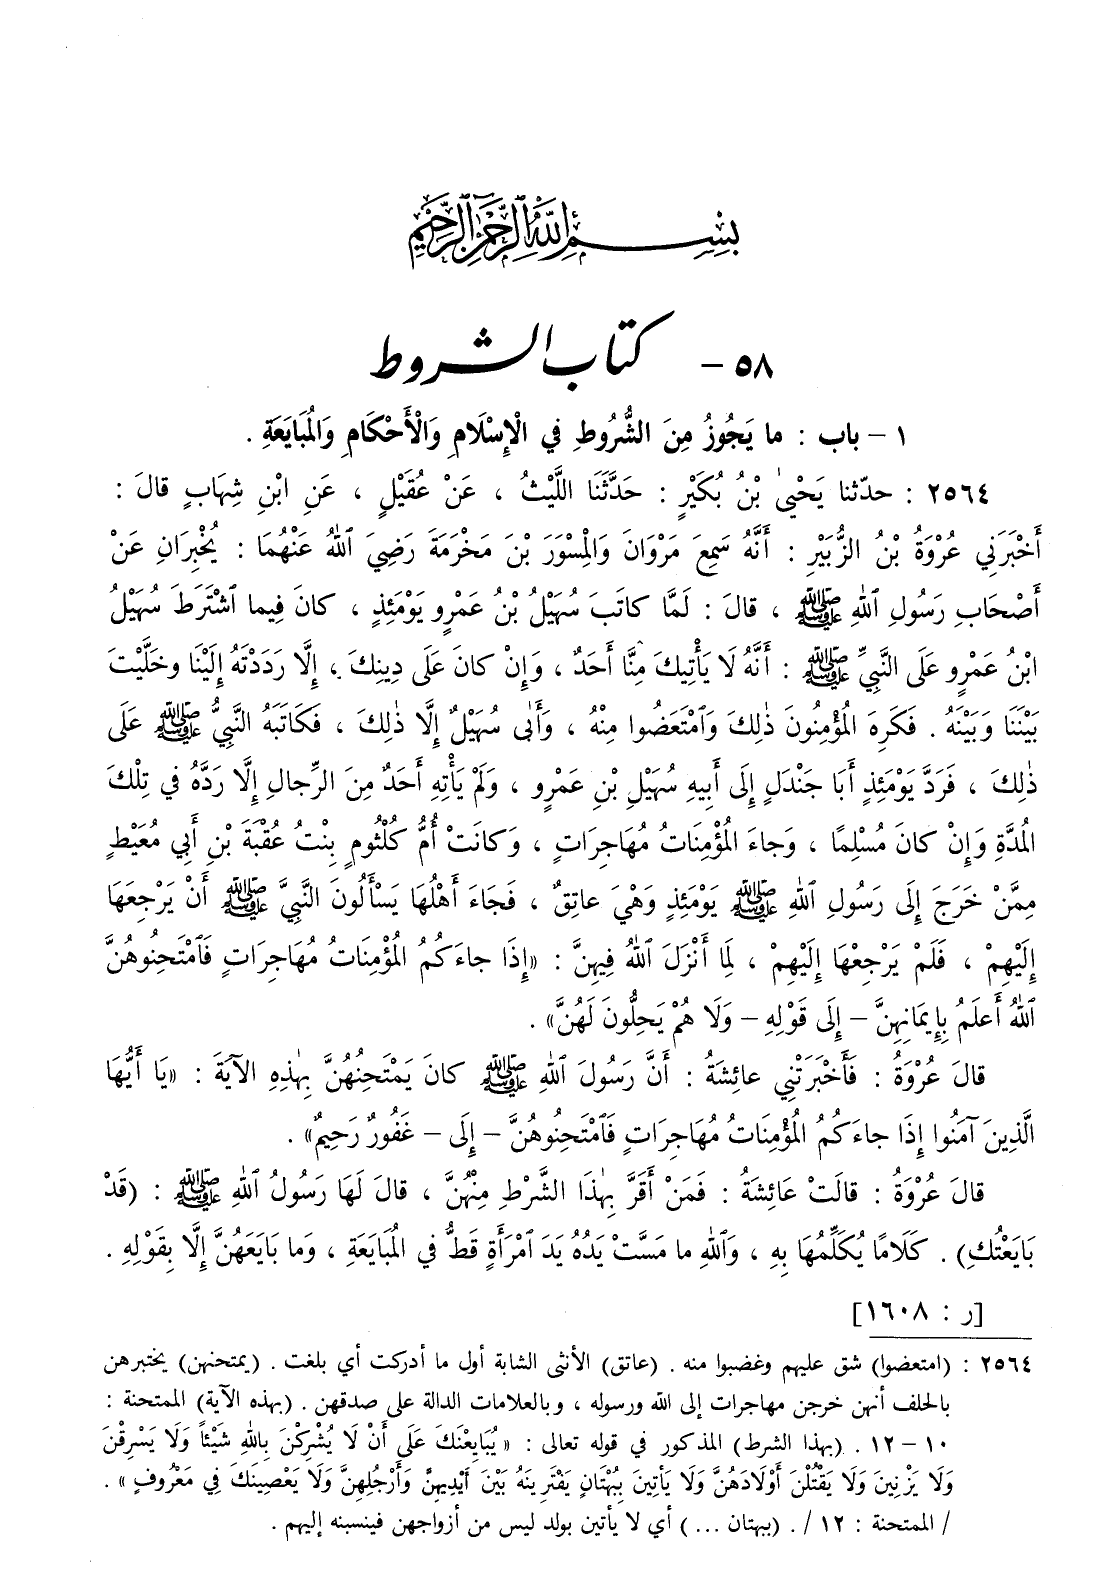 بِسْمِ ٱللَّهِ ٱلرَّحْمَٰنِ ٱلرَّحِيمِ
٥٨ - كتاب الشروط
١ - باب : ما يَجُوزُ مِنَ الشُّرُوطِ فِي الْإِسْلَامِ وَالْأَحْكَامِ وَالْمُبَايَعَةِ .
٢٥٦٤ : حدّثنا يَحْيىٰ بْنُ بُكَيْرٍ : حَدَّثَنَا اللَّيْثُ ، عَنْ عُقَيْلٍ ، عَنِ ابْنِ شِهَابٍ قالَ :
أَخْبَرَنِي عُرْوَةُ بْنُ الزُّبَيْرِ : أَنَّهُ سَمِعَ مَرْوَانَ وَالْمِسْوَرَ بْنَ مَخْرَمَةَ رَضِيَ ٱللهُ عَنْهُمَا : يُخْبِرَانِ عَنْ
أَصْحَابِ رَسُولِ ٱللهِ ﷺ ، قالَ : لَمَّا كاتَبَ سُهَيْلُ بْنُ عَمْرٍو يَوْمَئِذٍ ، كانَ فِيما ٱشْتَرَطَ سُهَيْلُ
ابْنُ عَمْرٍو عَلَى النَّبِيِّ ﷺ : أَنَّهُ لَا يَأْتِيكَ مِنَّا أَحَدٌ ، وَإِنْ كانَ عَلَى دِينِكَ ، إِلَّا رَدَدْتَهُ إِلَيْنَا وخَلَّيْتَ
بَيْنَنَا وَبَيْنَهُ . فَكَرِهَ الْمُؤْمِنُونَ ذٰلِكَ وَٱمْتَعَضُوا مِنْهُ ، وَأَبٰى سُهَيْلٌ إِلَّا ذٰلِكَ ، فَكَاتَبَهُ النَّبِيُّ ﷺ عَلَى
ذٰلِكَ ، فَرَدَّ يَوْمَئِذٍ أَبَا جَنْدَلٍ إِلَى أَبِيهِ سُهَيْلِ بْنِ عَمْرٍو ، وَلَمْ يَأْتِهِ أَحَدٌ مِنَ الرِّجالِ إِلَّا رَدَّهُ فِي تِلْكَ
الْمُدَّةِ وَإِنْ كانَ مُسْلِمًا ، وَجاءَ الْمُؤْمِنَاتُ مُهَاجِرَاتٍ ، وَكانَتْ أُمُّ كُلْثُومٍ بِنْتُ عُقْبَةَ بْنِ أَبِي مُعَيْطٍ
مِمَّنْ خَرَجَ إِلَى رَسُولِ ٱللهِ ﷺ يَوْمَئِذٍ وَهْيَ عاتِقٌ ، فَجَاءَ أَهْلُهَا يَسْأَلُونَ النَّبِيَّ ﷺ أَنْ يَرْجِعَهَا
إِلَيْهِمْ ، فَلَمْ يَرْجِعْهَا إِلَيْهِمْ ، لِمَا أَنْزَلَ ٱللهُ فِيهِنَّ : «إِذَا جاءَكُمُ الْمُؤْمِنَاتُ مُهَاجِرَاتٍ فَٱمْتَحِنُوهُنَّ
ٱللهُ أَعلَمُ بِإِيمَانِهِنَّ - إِلَى قَوْلِهِ - وَلَا هُمْ يَحِلُّونَ لَهُنَّ» .
قالَ عُرْوَةُ : فَأَخْبَرَتْنِي عائِشَةُ : أَنَّ رَسُولَ ٱللهِ ﷺ كانَ يَمْتَحِنُهُنَّ بِهٰذِهِ الآيَةَ : «يَا أَيُّهَا
الَّذِينَ آمَنُوا إِذَا جاءَكُمُ الْمُؤْمِنَاتُ مُهَاجِرَاتٍ فَٱمْتَحِنُوهُنَّ - إِلَى - غَفُورٌ رَحِيمٌ» .
قالَ عُرْوَةُ : قالَتْ عَائِشَةُ : فَمَنْ أَقَرَّ بِهٰذَا الشَّرْطِ مِنْهُنَّ ، قالَ لَهَا رَسُولُ ٱللهِ ﷺ : (قَدْ
بَايَعْتُكِ) . كَلَامًا يُكَلِّمُهَا بِهِ ، وَٱللهِ ما مَسَّتْ يَدُهُ يَدَ ٱمْرَأَةٍ قَطُّ فِي الْمُبَايَعَةِ ، وَما بَايَعَهُنَّ إِلَّا بِقَوْلِهِ .
[ر : ١٦٠٨]
٢٥٦٤ : (امتعضوا) شق عليهم وغضبوا منه . (عاتق) الأنثى الشابة أول ما أدركت أي بلغت . (يمتحنهن) يختبرهن
بالحلف أنهن خرجن مهاجرات إلى الله ورسوله ، وبالعلامات الدالة على صدقهن . (بهذه الآية) الممتحنة :
١٠ - ١٢ . (بهذا الشرط) المذكور في قوله تعالى : «يُبَايِعْنَكَ عَلَى أَنْ لَا يُشْرِكْنَ بِاللهِ شَيْئاً وَلَا يَسْرِقْنَ
وَلَا يَزْنِينَ وَلَا يَقْتُلْنَ أَوْلَادَهُنَّ وَلَا يَأْتِينَ بِبُهْتَانٍ يَفْتَرِينَهُ بَيْنَ أَيْدِيهِنَّ وَأَرْجُلِهِنَّ وَلَا يَعْصِينَكَ فِي مَعْرُوفٍ» .
/ الممتحنة : ١٢ / . (ببهتان ...) أي لا يأتين بولد ليس من أزواجهن فينسبنه إليهم .